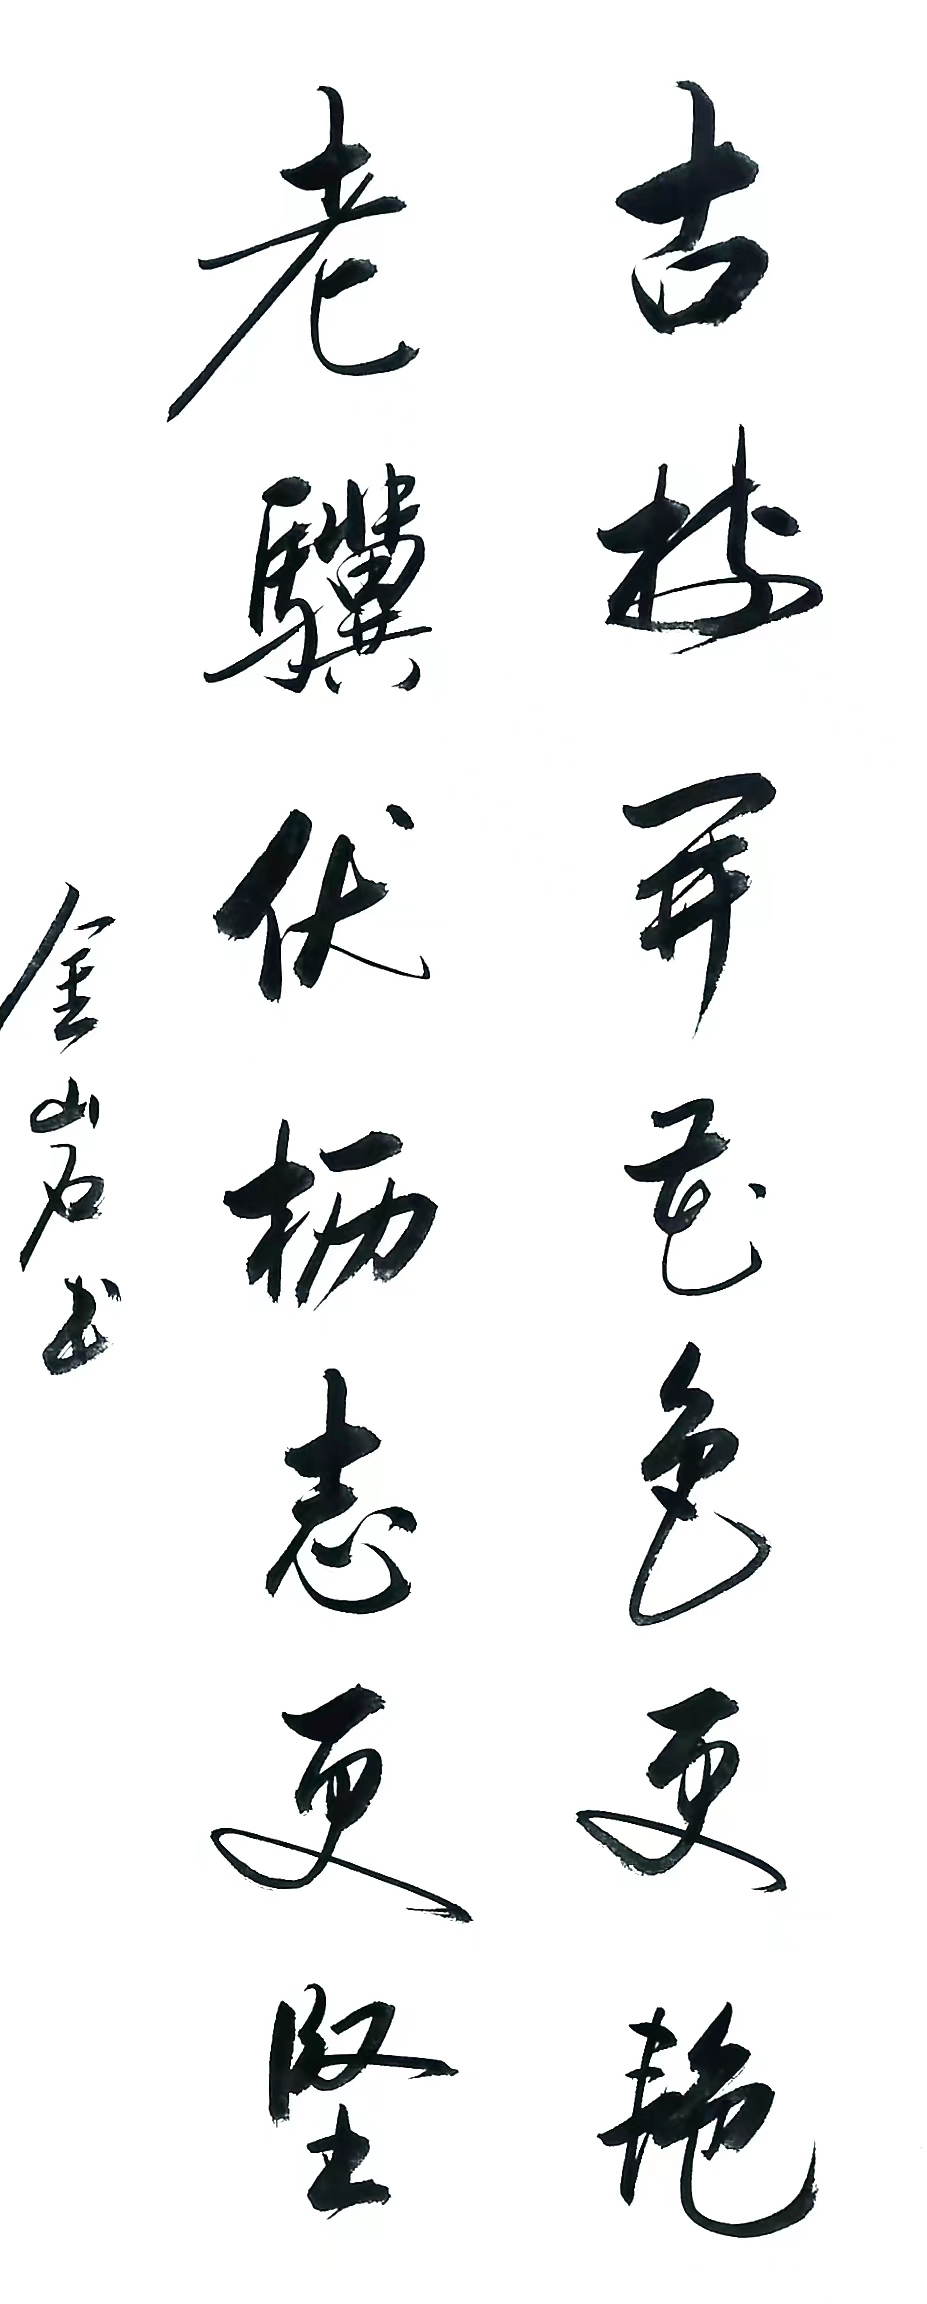 古树开花色更艳
老骥伏枥志更坚
金山石书